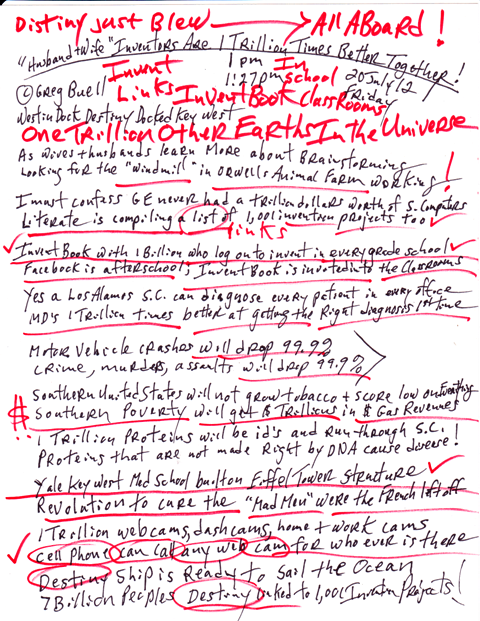 Distiny Just Blew All Aboard!
"Husband + Wife" Inventors Are 1 Trillion Times Better Together!
Invent 1 pm In
© Greg Buell Links 1:27pm School 20 July 12
InventBook Classrooms Friday
Westin Dock Destiny Docked Key West
One Trillion Other Earths In the Universe
As wives + husbands learn More about Brainstorming
Looking for the "windmill" in Orwells Animal Farm working!
I must confess GE never had a trillion dollars worth of S. Computers
Literate is compiling a list of 1,001 invention projects too
links
Invent Book with 1 Billion who log on to invent in every grade school
Facebook is afterschool; Invent Book is invoted into the Classrooms
Yes a Los Alamos S.C. can diagnose every patient in every office
MD's 1 Trillion times better at getting the Right diagnosis 1st time
Motor Vehicle crashes will drop 99.9%
crime, murders, assaults will drop 99.9%
Southern United States will not grow tobacco + score low on Everything
$ Southern Poverty will get $ Trillions in $ Gas Revenues
1 Trillion Proteins will be id's and Run through S.C.
Proteins that are not made Right by DNA cause disease!
Yale Key West Med School built on Eiffel Tower Structure
Revolution to cure the "Mad Men" were the French left off
1 Trillion webcams, dashcams, home + work cams
cell phone can call any web cam for who ever is there
Destiny Ship is Ready to Sail the Ocean
7 Billion Peoples Destiny linked to 1,001 Invention Projects!